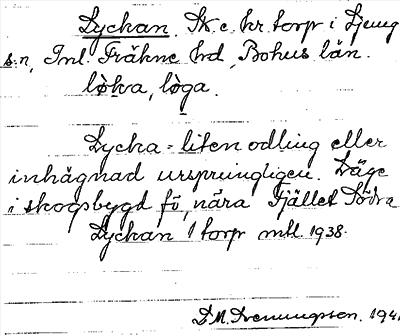 Lyckan. Sk. e. kr. torp i Ljung
s:n, Inl. Fräkne hd, Bohus län.
løk̲a, lòga.
Lycka = liten odling eller
inhägnad ursprungligen. Läge
i skogsbygd fö, nära Fjället Södra
Lyckan 1 torp mtl 1938.
D.M. Svenungsson. 194